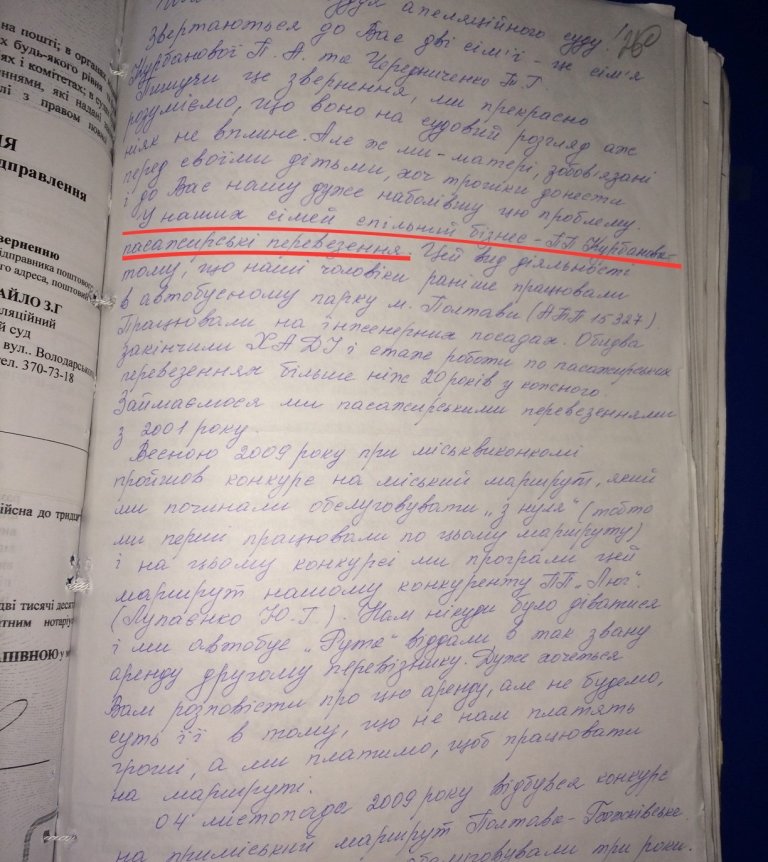 на пошті; в органах
х будь-якого рівня
ях і комітетах; в суд
ннями, які надані
лі з правом
ІЯ
дправлення
вернению
ідправника поштовог
го адреса, поштовий
АЙЛО З.Г
еляційний
й суд
вул.. Володарсько
тел. 370-73-18
ійсна до тридц
дві тисячі десят
атним нотаріус
АПІВНОЮ у м
260
суддя апеляційного суду!
Звертаються до Вас дві сім'ї - це сім'я
Курбанової П. А. та Чередниченко Т. Г.
Пишучи це звернення, ми прекрасно
розуміємо, що воно на судовий розгляд аж
ніяк не вплине. Але ж ми - матері, зобов'язані
перед своїми дітьми, хоч трошки донести
і до Вас нашу дуже наболівшу цю проблему.
У наших сімей спільний бізнес - ПП Курбанова -
пасажирські перевезення. Цей вид діяльності
тому, що наші чоловіки раніше працювали
в автобусному парку м. Полтави (АТП 15327).
Працювали на інженерних посадах. Обидва
закінчили ХАДІ і стаж роботи по пасажирських
перевезеннях більше ніж 20 років у кожного
Займаємося ми пасажирськими перевезеннями
з 2001 року.
Весною 2009 року при міськвиконкомі
пройшов конкурс на міський маршрут, який
ми починали обслуговувати „з нуля“ (тобто
ми перші працювали по цьому маршруту)
і на цьому конкурсі ми програли цей
маршрут нашому конкуренту ПП „Люг“.
(Лупаєнко Ю. Г). Нам нікуди було діватися
і ми автобус „Рута“ віддали в так звану
аренду другому перевізнику. Дуже хочеться
Вам розповісти про цю аренду, але не будемо,
суть її в тому, що не нам платять
гроші, а ми платимо, щоб працювати
на маршруті.
04 листопада 2009 року відбувся конкурс
на приміський маршрут Полтава -
обслуговували три роки.